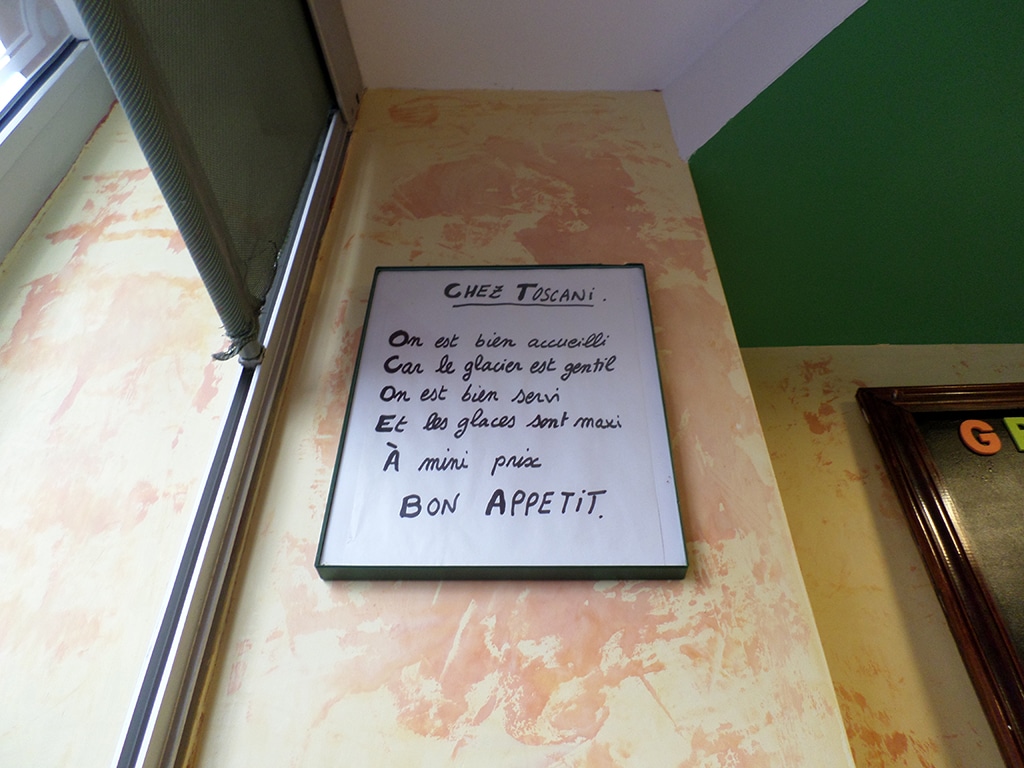 CHEZ TOSCANI.
On est bien accueilli
Car le glacier est gentil
On est bien servi
Et les glaces sont maxi
À mini prix
BON APPETIT.
G